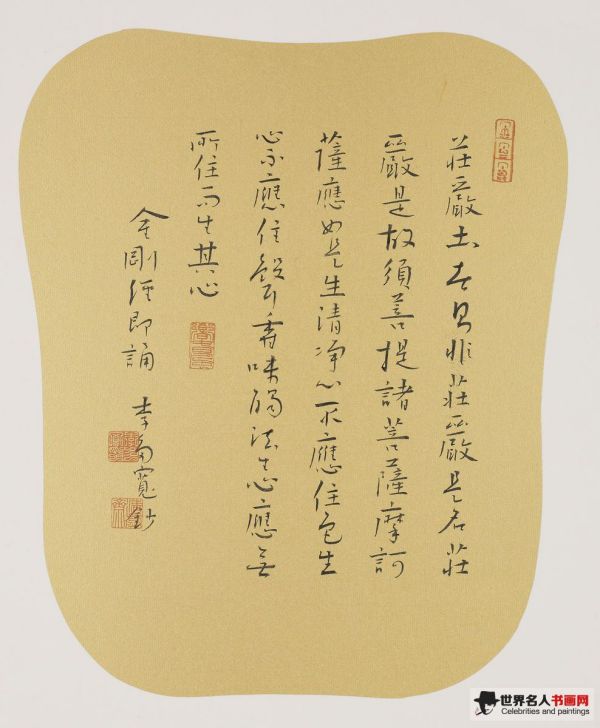 莊嚴土者即非莊嚴是名莊
嚴是故須菩提諸菩薩摩訶
薩應如是生清净心不應住色生
心不應住聲香味觸法生心應無
所住而生其心
金剛經即誦 李寬鈔
世界名人书画网
Celebrities and paintings